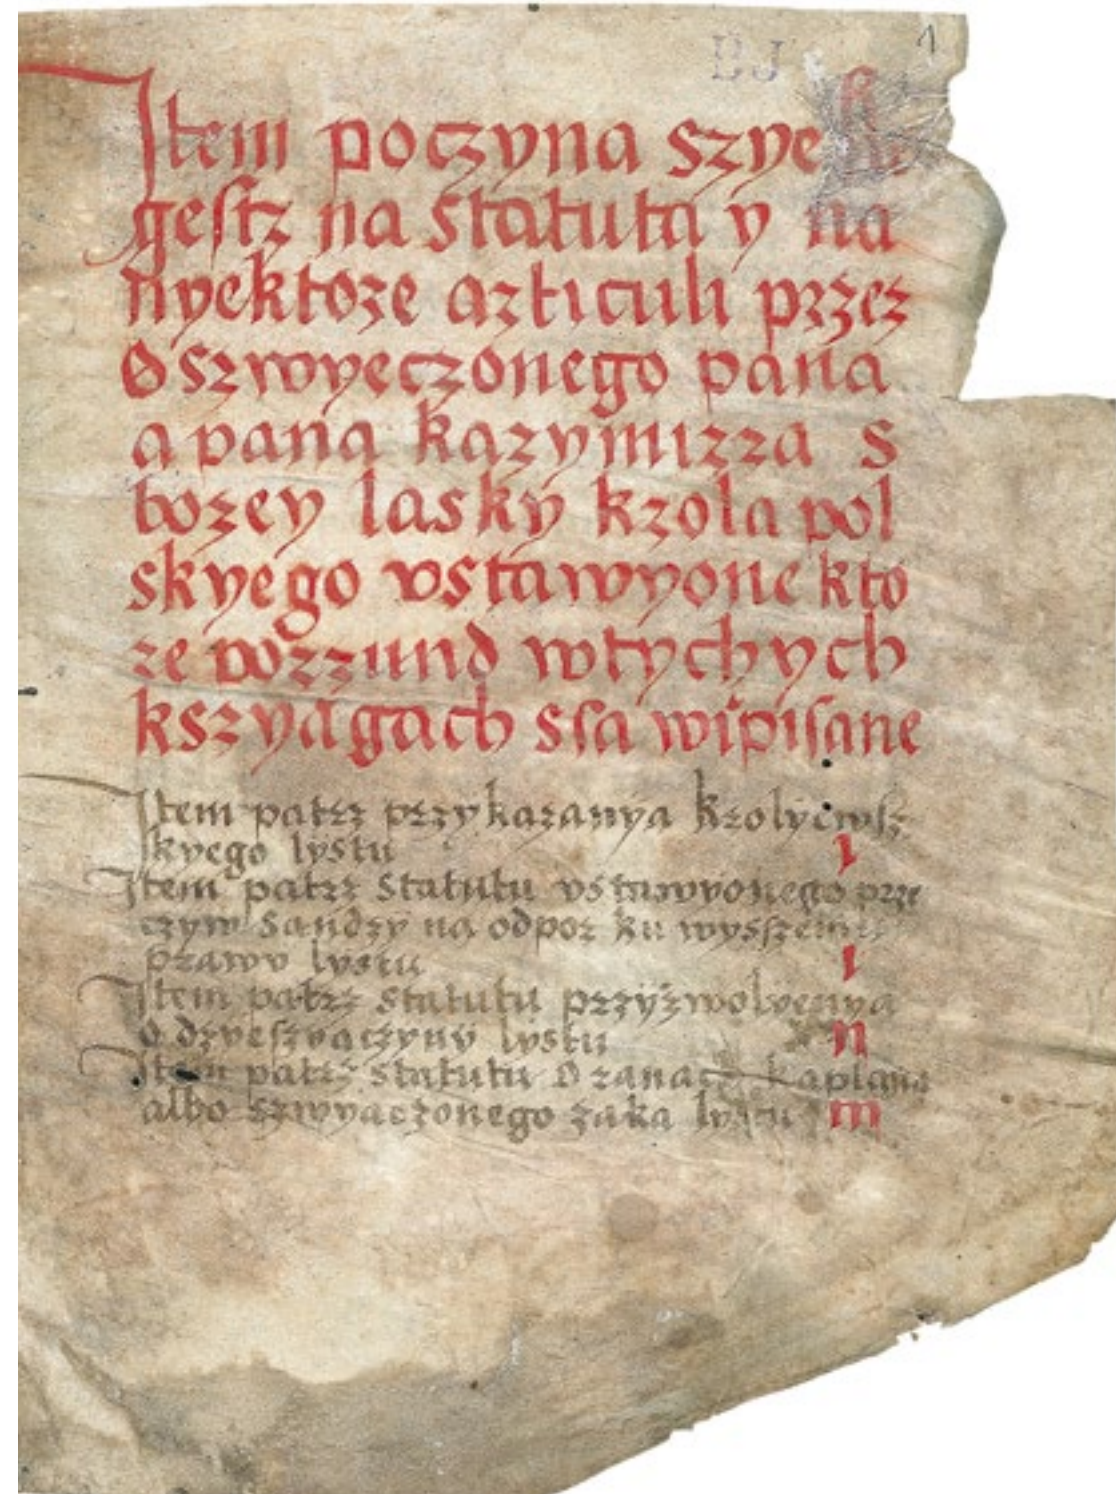 BJ 1
Item poczyna szye
gestz na statuta y na
nyektore articuli przez
Oszwyeczonego pana
a pana kazymirza s
bozey lasky krola pol
skyego vstawyone kto
re vorzund wtychych
kszyagach ssa wipisane
Item patrz przykazanya krolyewsz
skyego lystu ı
Item patrz statutu vstawyonego prze
czyw sandzy na odpor ku wysszemu
prawu lystu ı
Item patrz statutu przyzwolyenya
o dzyeszyaczyny lystu n
Item patrz statutu O ranach kaplana
albo szwyaczonego zaka lystu m